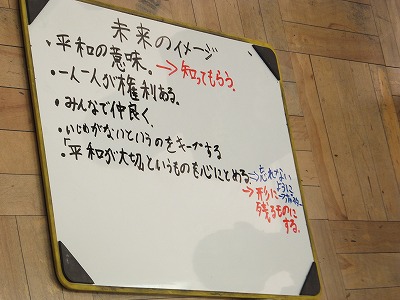 未来のイメージ
・平和の意味。→知ってもらう。
・一人一人が権利ある。
・みんなで仲良く。
・いじめがないというのをキープする
・「平和が大切」というものを心にとめる→忘れない
ように
→形に
残るものに
する。